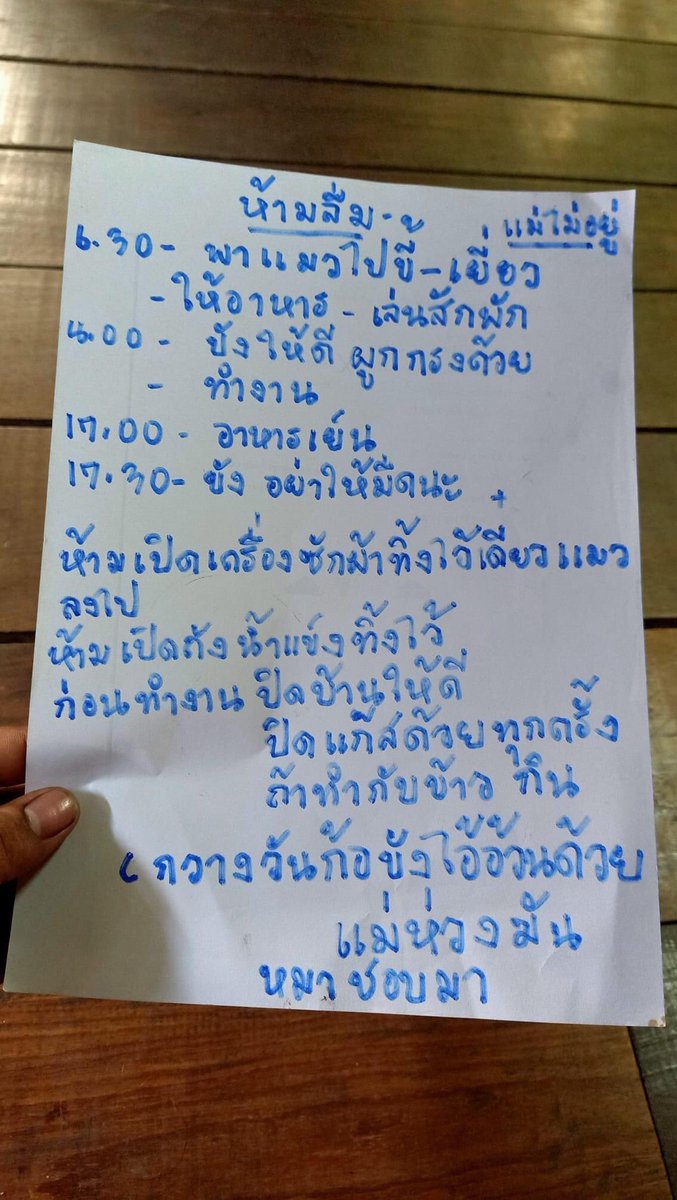 ห้ามลืม - แม่ไม่อยู่
6.30 - พาแมวไปขี้ - เยี่ยว
- ให้อาหาร - เล่นสักพัก
8.00 - ขังให้ดี ผูกกรงด้วย
- ทำงาน
17.00 - อาหารเย็น
17.30 - ขัง อย่าให้มืดนะ
ห้ามเปิดเครื่องซักผ้าทิ้งไว้เดียวแมว
ลงไป
ห้ามเปิดถังน้ำแข็งทิ้งไว้
ก่อนทำงาน ปิดบ้านให้ดี
ปิดแก๊สด้วยทุกครั้ง
ถ้าทำกับข้าว กิน
(กวางวันก้อขังไอ้อ้วนด้วย
แม่ห่วงมัน
หมาชอบมา